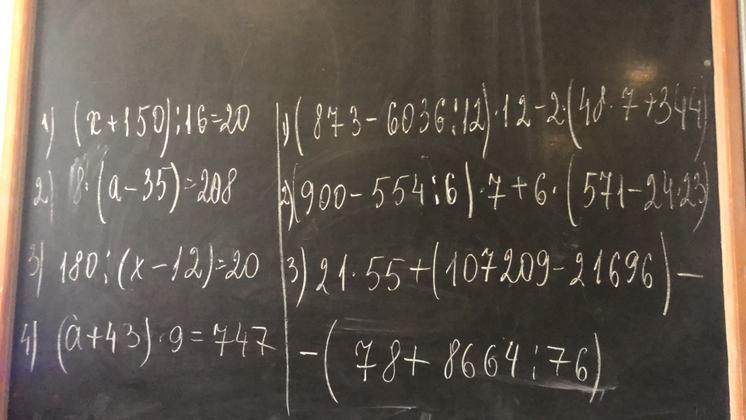 1) (x+150):16=20
2) 8·(a-35)=208
3) 180:(x-12)=20
4) (a+43)·9=747
1) (873-6036:12)·12-2·(48·7+344)
2) (900-554:6)·7+6·(571-24·23)
3) 21·55+(107209-21696)-
-(78+8664:76)